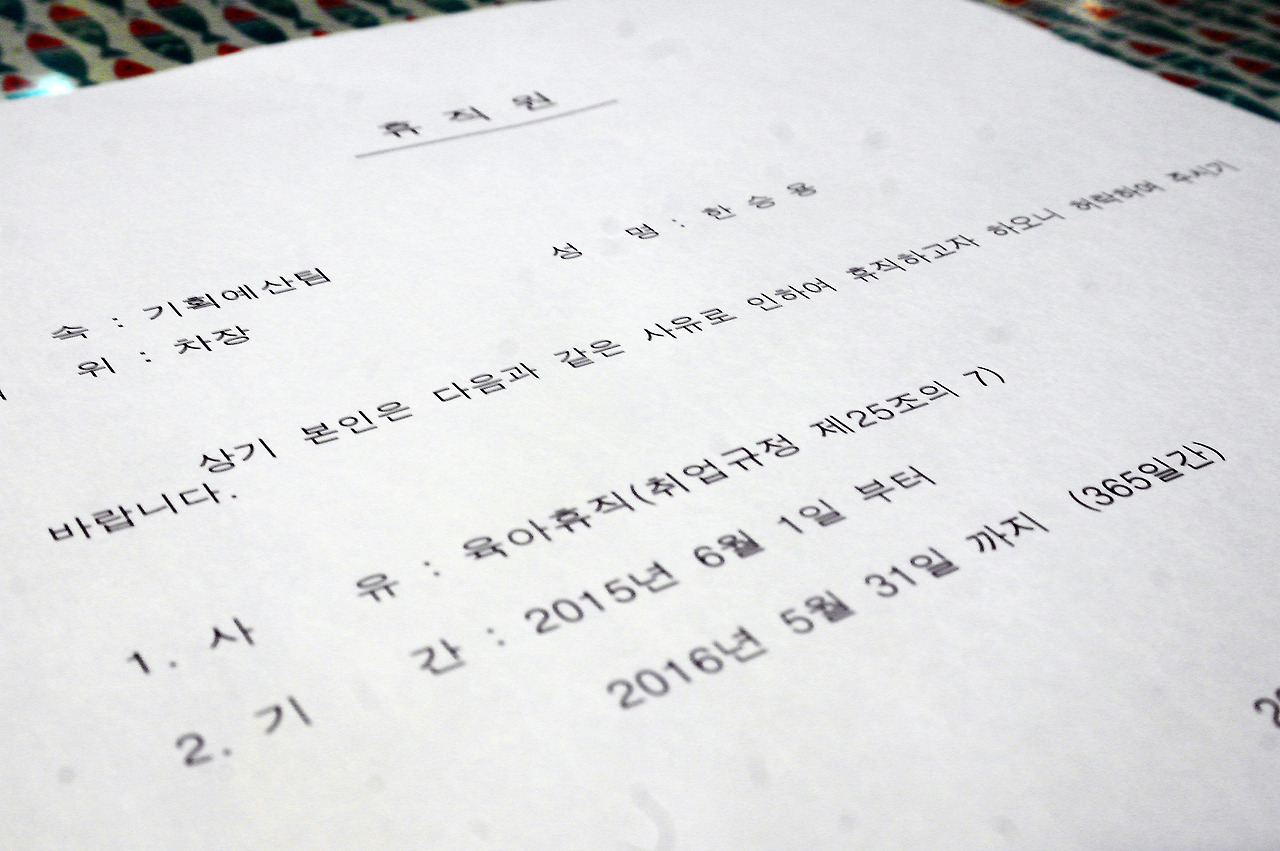 휴 직 원
성 명 : 한 승 용
속 : 기획예산팀
위 : 차장
상기 본인은 다음과 같은 사유로 인하여 휴직하고자 하오니 허락하여 주시기
바랍니다.
1. 사 유 : 육아휴직(취업규정 제25조의 7)
2. 기 간 : 2015년 6월 1일 부터
2016년 5월 31일 까지 (365일간)